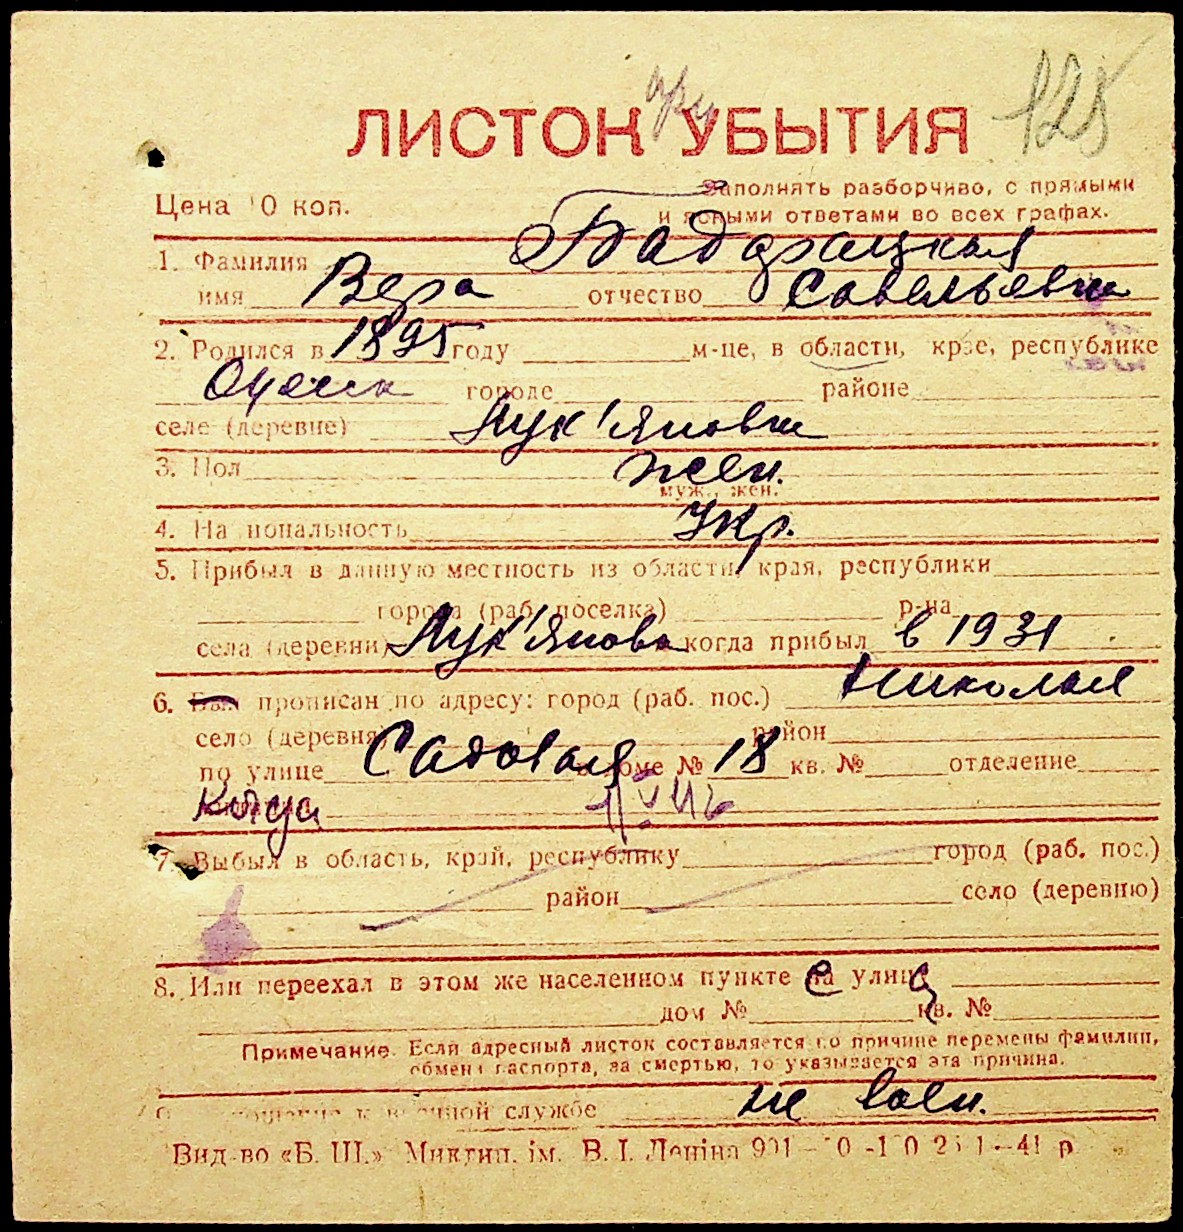 при 125
ЛИСТОК УБЫТИЯ
Цена 10 коп.
Заполнять разборчиво, с прямыми
и ясными ответами во всех графах.
1. Фамилия Бадрацкая
имя Вера отчество Савельевна
2. Родился в 1895 году м-це, в области, крае, республике
Одеск городе районе
селе (деревне) Лук'яновка
3. Пол жен.
муж., жен.
4. Национальность Укр.
5. Прибыл в данную местность из области, края, республики
города (раб. поселка) р-на
села (деревни) Лук'яновка когда прибыл в 1931
6. Был прописан по адресу: город (раб. пос.) Николаев
село (деревня) район
по улице Садовая в доме № 18 кв. № отделение
7. Выбыл в область, край, республику город (раб. пос.)
район село (деревню)
8. Или переехал в этом же населенном пункте на улицу
дом № кв. №
Примечание. Если адресный листок составляется по причине перемены фамилии,
обмена паспорта, за смертью, то указывается эта причина.
9. Отношение к военной службе не воен.
Вид-во «Б. Ш.» Миктип. ім. В. І. Леніна